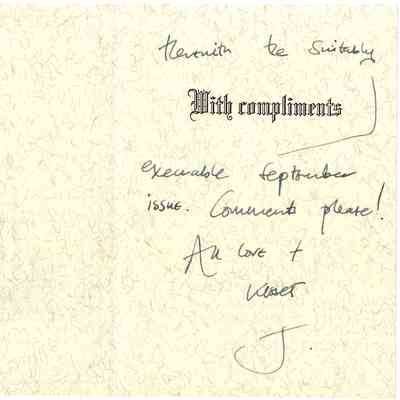 Herewith the suitably
With compliments
execrable September
issue. Comments please!
All love +
kisses
J.